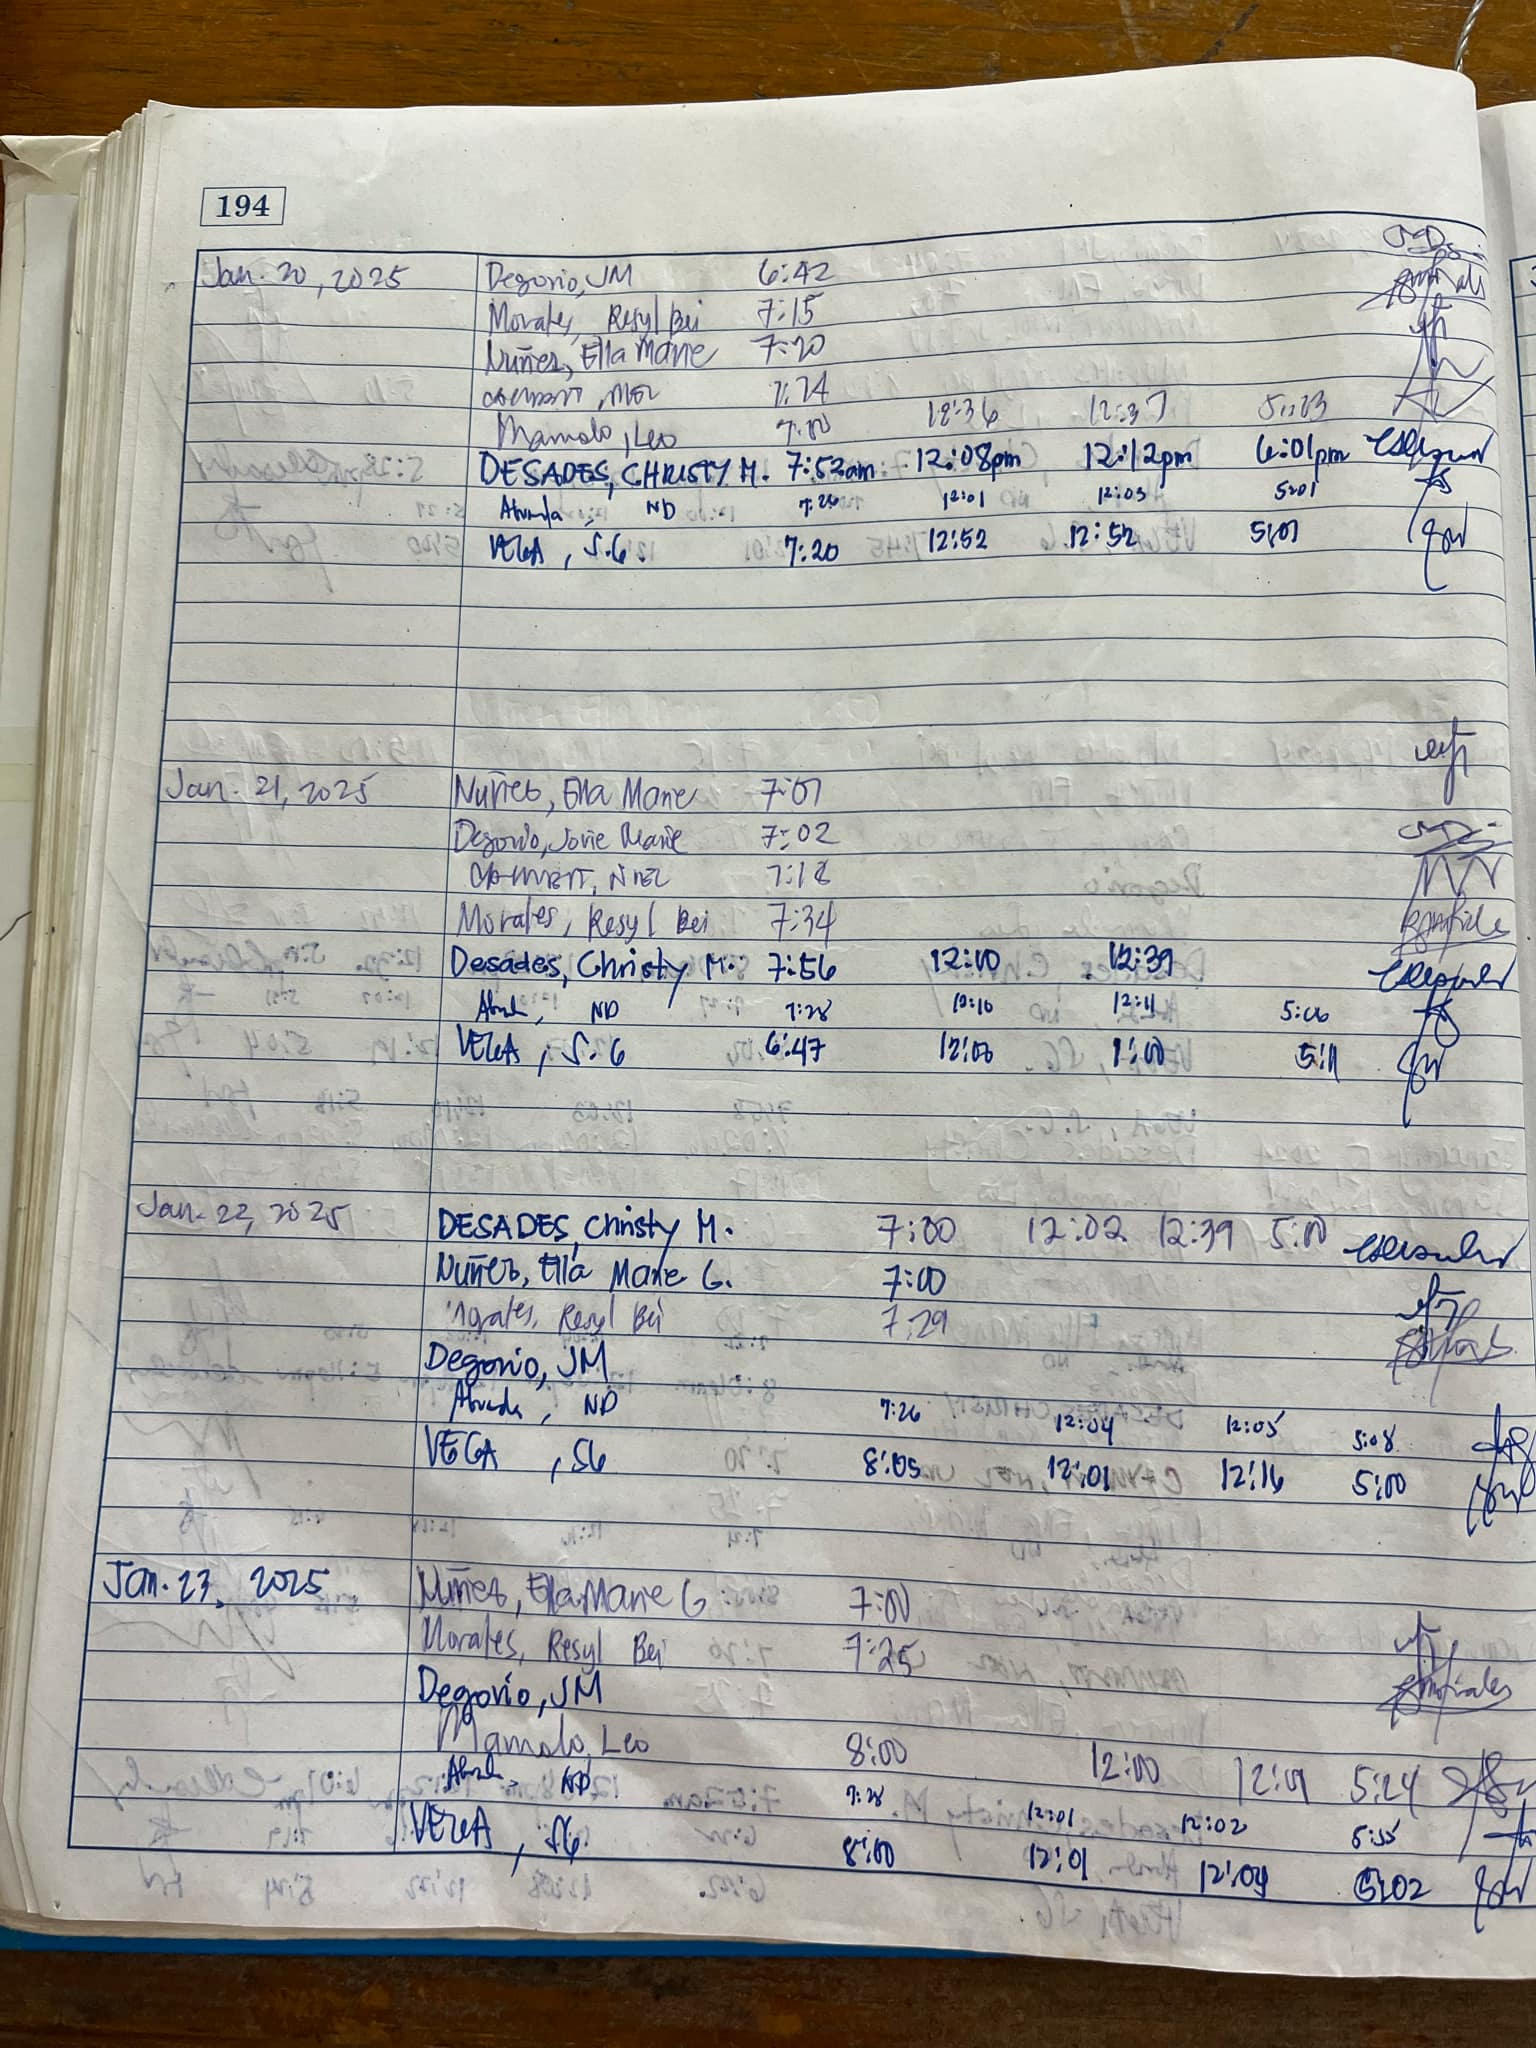 194
Jan. 20, 2025 Degorio, JM 6:42
Morales, Resyl Bei 7:15
Nuñez, Ella Marie 7:20
7:24
Mamolo, Leo 7:00 12:36 12:37 5:23
DESADES, CHRISTY M. 7:52am 12:08pm 12:12pm 6:01pm
ND 7:26 12:01 12:03 5:01
VEGA, S.G. 7:20 12:52 12:52 5:07
Jan. 21, 2025 Nuñez, Ella Marie 7:01
Degorio, Jovie Marie 7:02
7:18
Morales, Resyl Bei 7:34
Desades, Christy M. 7:56 12:10 12:39
ND 7:28 12:10 12:11 5:06
VEGA, S.G 6:47 12:00 1:00 5:11
Jan. 22, 2025 DESADES, Christy M. 7:00 12:02 12:39 5:00
Nuñez, Ella Marie G. 7:00
Morales, Resyl Bei 7:29
Degorio, JM
ND 7:26 12:04 12:05 5:08
VEGA, SG 8:05 12:01 12:16 5:00
Jan. 23, 2025 Nuñez, Ella Marie G 7:00
Morales, Resyl Bei 7:25
Degorio, JM
Mamolo, Leo 8:00 12:00 12:01 5:24
ND 7:28 12:01 12:02 5:35
VEGA, SG 8:00 12:01 12:04 5:02